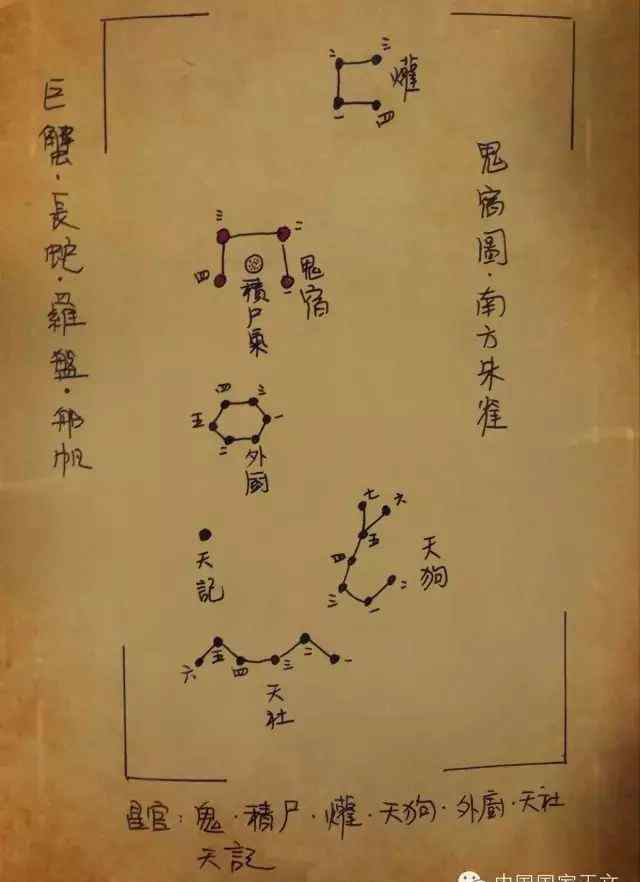 鬼宿圖·南方朱雀
巨蟹·長蛇·羅盤·船帆
二 三
爟
一 四
三 二
四 一
鬼宿
積尸氣
四 三
五 一
二
外厨
七 六
五
四
三 一 二
天狗
天記
六 五 四 三 二 一
天社
星官:鬼·積尸·爟·天狗·外廚·天社
天記
中国国家天文